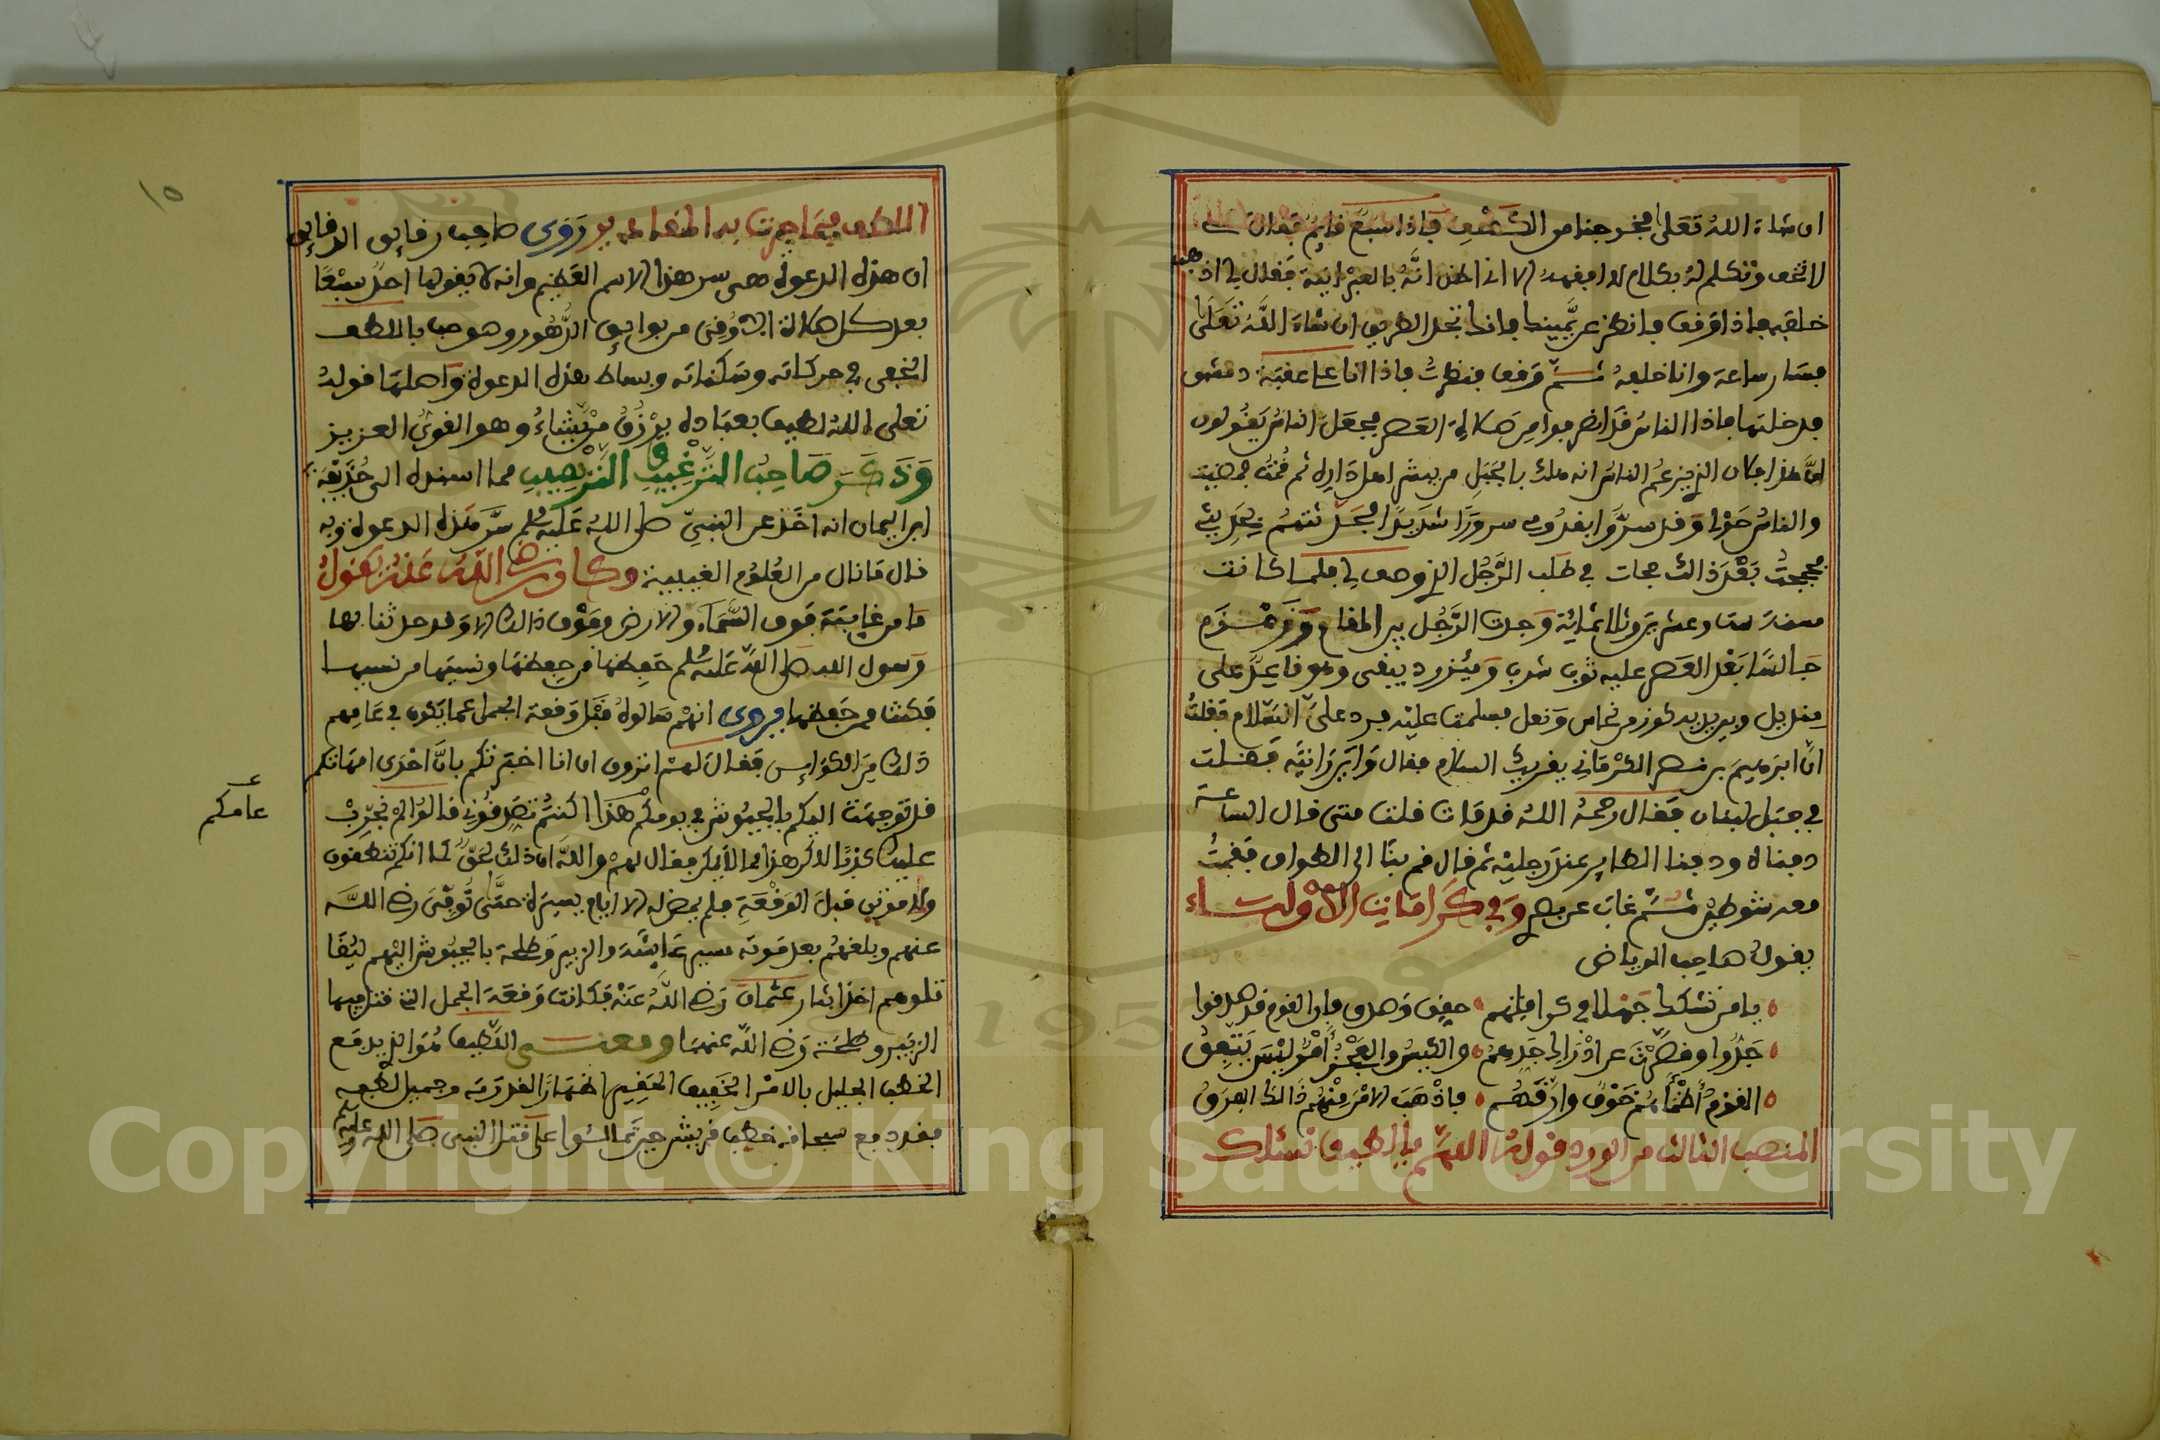 ان شاء الله تعلى فخرجنا من الكهف فاذا سبع قايم فقال لي
لا تخف وتكلم له بكلام لم افهمه الا اني اظن انه بالعبرانية فقال لي اذهب
خلفه فاذا وقف فانظر عن يمينك فانك تجد الطريق ان شاء الله تعلى
فسار ساعة وانا خلفه ثم وقف فنظرت فاذا انا على عقبة دمشق
فدخلتها فاذا الناس قد انصرفوا من صلاة العصر فجعل الناس يقولون
هذا كان الذي زعم الناس انه هلك بالجبل من بيش اهل داره ثم قمت فمضيت
والناس حولي وقد سروا بقدومي سرورا شديدا فجعلت
فحججت بعد ذلك حجات في طلب الرجل الذي وصف لي فلما كانت
سنة ست وعشرين وثلاثماية وجدت الرجل بين المقام وزمزم
جالسا بعد العصر عليه ثوب شرب وميزر دبيقي وهو قاعد على
منديل وبين يديه كوز من نحاس ونعل فسلمت عليه فرد علي السلام فقلت
ان ابرهيم بن نصر الكرماني يقريك السلام فقال واين رايته فقلت
في جبل لبنان فقال رحمه الله قد مات قلت متى قال الساعة
دفناه ودفنا الطاير عند رجليه ثم قال قم بنا الى الطواف فقمت
معه شوطين ثم غاب عني وفي كرامات الاولياء
يقول صاحب الرياض
يا من تشكك جهلا في كراماتهم حقق وصدق فان القوم قد صدقوا
جدوا وقصرت عن ادراك جدهم والكيس والعجز امر ليس يتفق
القوم اظماهم خوف وارقهم فاذهب الامن منهم ذلك الفرق
المنصب الثالث من الورد قوله اللهم يا لطيف نسئلك
١٥
اللطف فيما جرت به المقادير وروى صاحب رقايق الدقايق
ان هذه الدعوة هي سر هذا الاسم العظيم وانه لا يقولها احد سبعا
بعد كل صلاة الا وقي من بوايق الدهور وهو حب باللطف
الخفي في حركاته وسكناته وبساط هذه الدعوة واصلها قوله
تعلى الله لطيف بعباده يرزق من يشاء وهو القوي العزيز
وذكر صاحب الترغيب والترهيب مما اسنده الى حذيفة
ابن اليمان انه اخذ عن النبي صلى الله عليه وسلم سر هذه الدعوة وبه
نال ما نال من العلوم الغيبية وكان رضي الله عنه يقول
ما من غايبة فوق السماء والارض وفوق ذلك الا وقد حدثنا بها
رسول الله صلى الله عليه وسلم حفظها من حفظها ونسيها من نسيها
فكنت ممن حفظها فيروى انهم سالوه قبل وقعة الجمل عما يكون في عامهم
ذلك من الكواين فقال لهم اترون ان انا اخبرتكم بان احدى امهاتكم
قد توجهت اليكم بالجيوش في يومكم هذا اكنتم تصدقوني قالوا لم نجرب
عليك كذبا لاكن هذا ما لا يمكن فقال لهم والله ان ذلك لحق كما انكم تنطقون
ولاموتن قبل الوقعة فلم يمض له الا ايام يسيرة حتى توفي رضي الله
عنهم وبلغهم بعد موته سير عايشة والزبير وطلحة بالجيوش اليهم ليقا
تلوهم اخذا بثار عثمان رضي الله عنه فكانت وقعة الجمل التي قتل فيها
الزبير وطلحة رضي الله عنهما ومعنى اللطيف هو الذي يدفع
الخطب الجليل بالامر الخفيف الحقير اظهارا لقدرته وجميل لطفه
فقد دفع سبحانه خطب قريش حين تمالئوا على قتل النبي صلى الله عليه و
عامكم
Copyright © King Saud University
1957